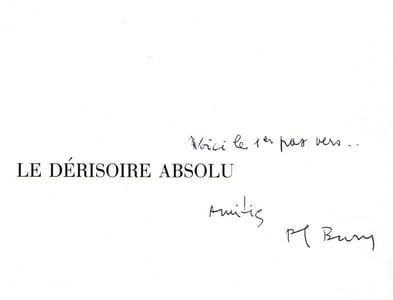 Voici le 1er pas vers..
LE DÉRISOIRE ABSOLU
Amitié
Pol Bury